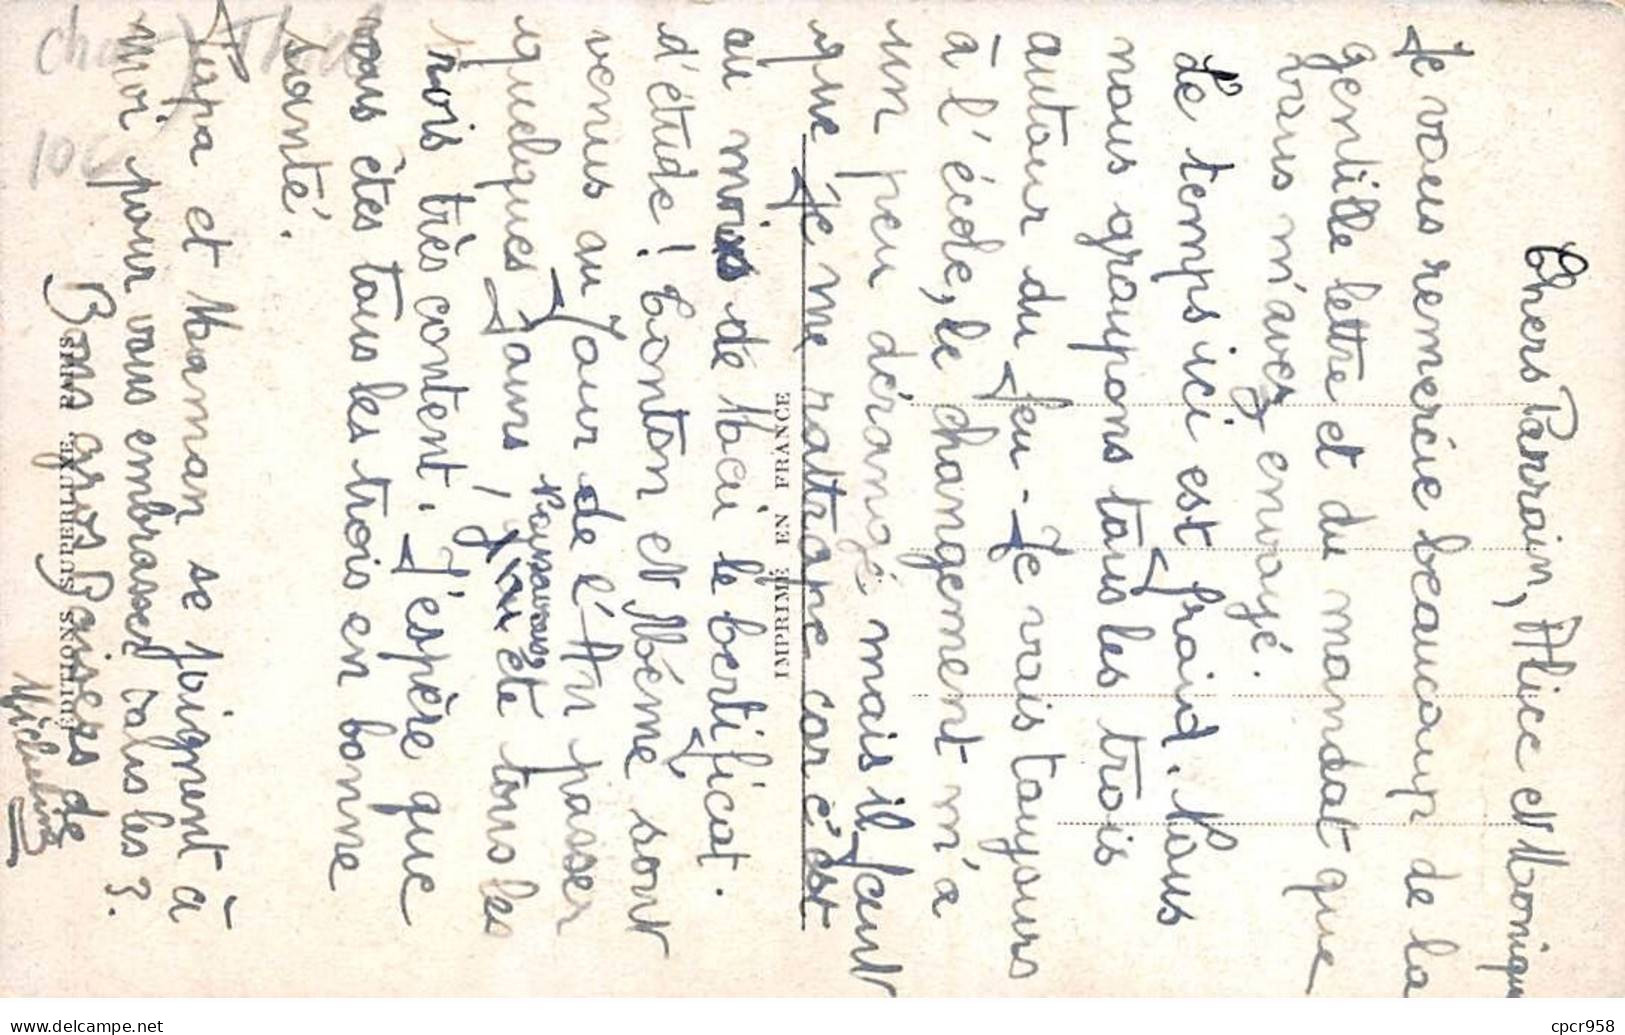 Chers Parrain, Alice et Monique
Je vous remercie beaucoup de la
gentille lettre et du mandat que
vous m'avez envoyé.
Le temps ici est froid. Nous
nous groupons tous les trois
autour du feu - Je vais toujours
à l'école, le changement m'a
un peu dérangé, mais il faut
que je me rattrape car c'est
au mois de Mai le Certificat
d'étude! Tonton et Mémé sont
venus au Jour de l'An passer
quelques Jours, nous avons été tous les
trois très content. J'espère que
vous êtes tous les trois en bonne
santé.
Papa et Maman se joignent à
moi pour vous embrasser tous les 3.
Bons gros Baisers de
Micheline
IMPRIMÉ EN FRANCE
ÉDITIONS SUPERLUXE, PARIS
cpcr958